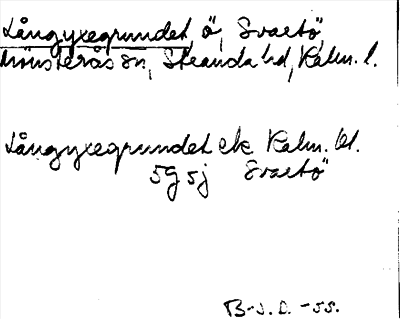 Långyxegrundet, ö, Svartö,
Mönsterås sn, Stranda hd, Kalm. l.
Långyxegrundet ek Kalm. bl.
5g 5j Svartö
B-J. D. -55.